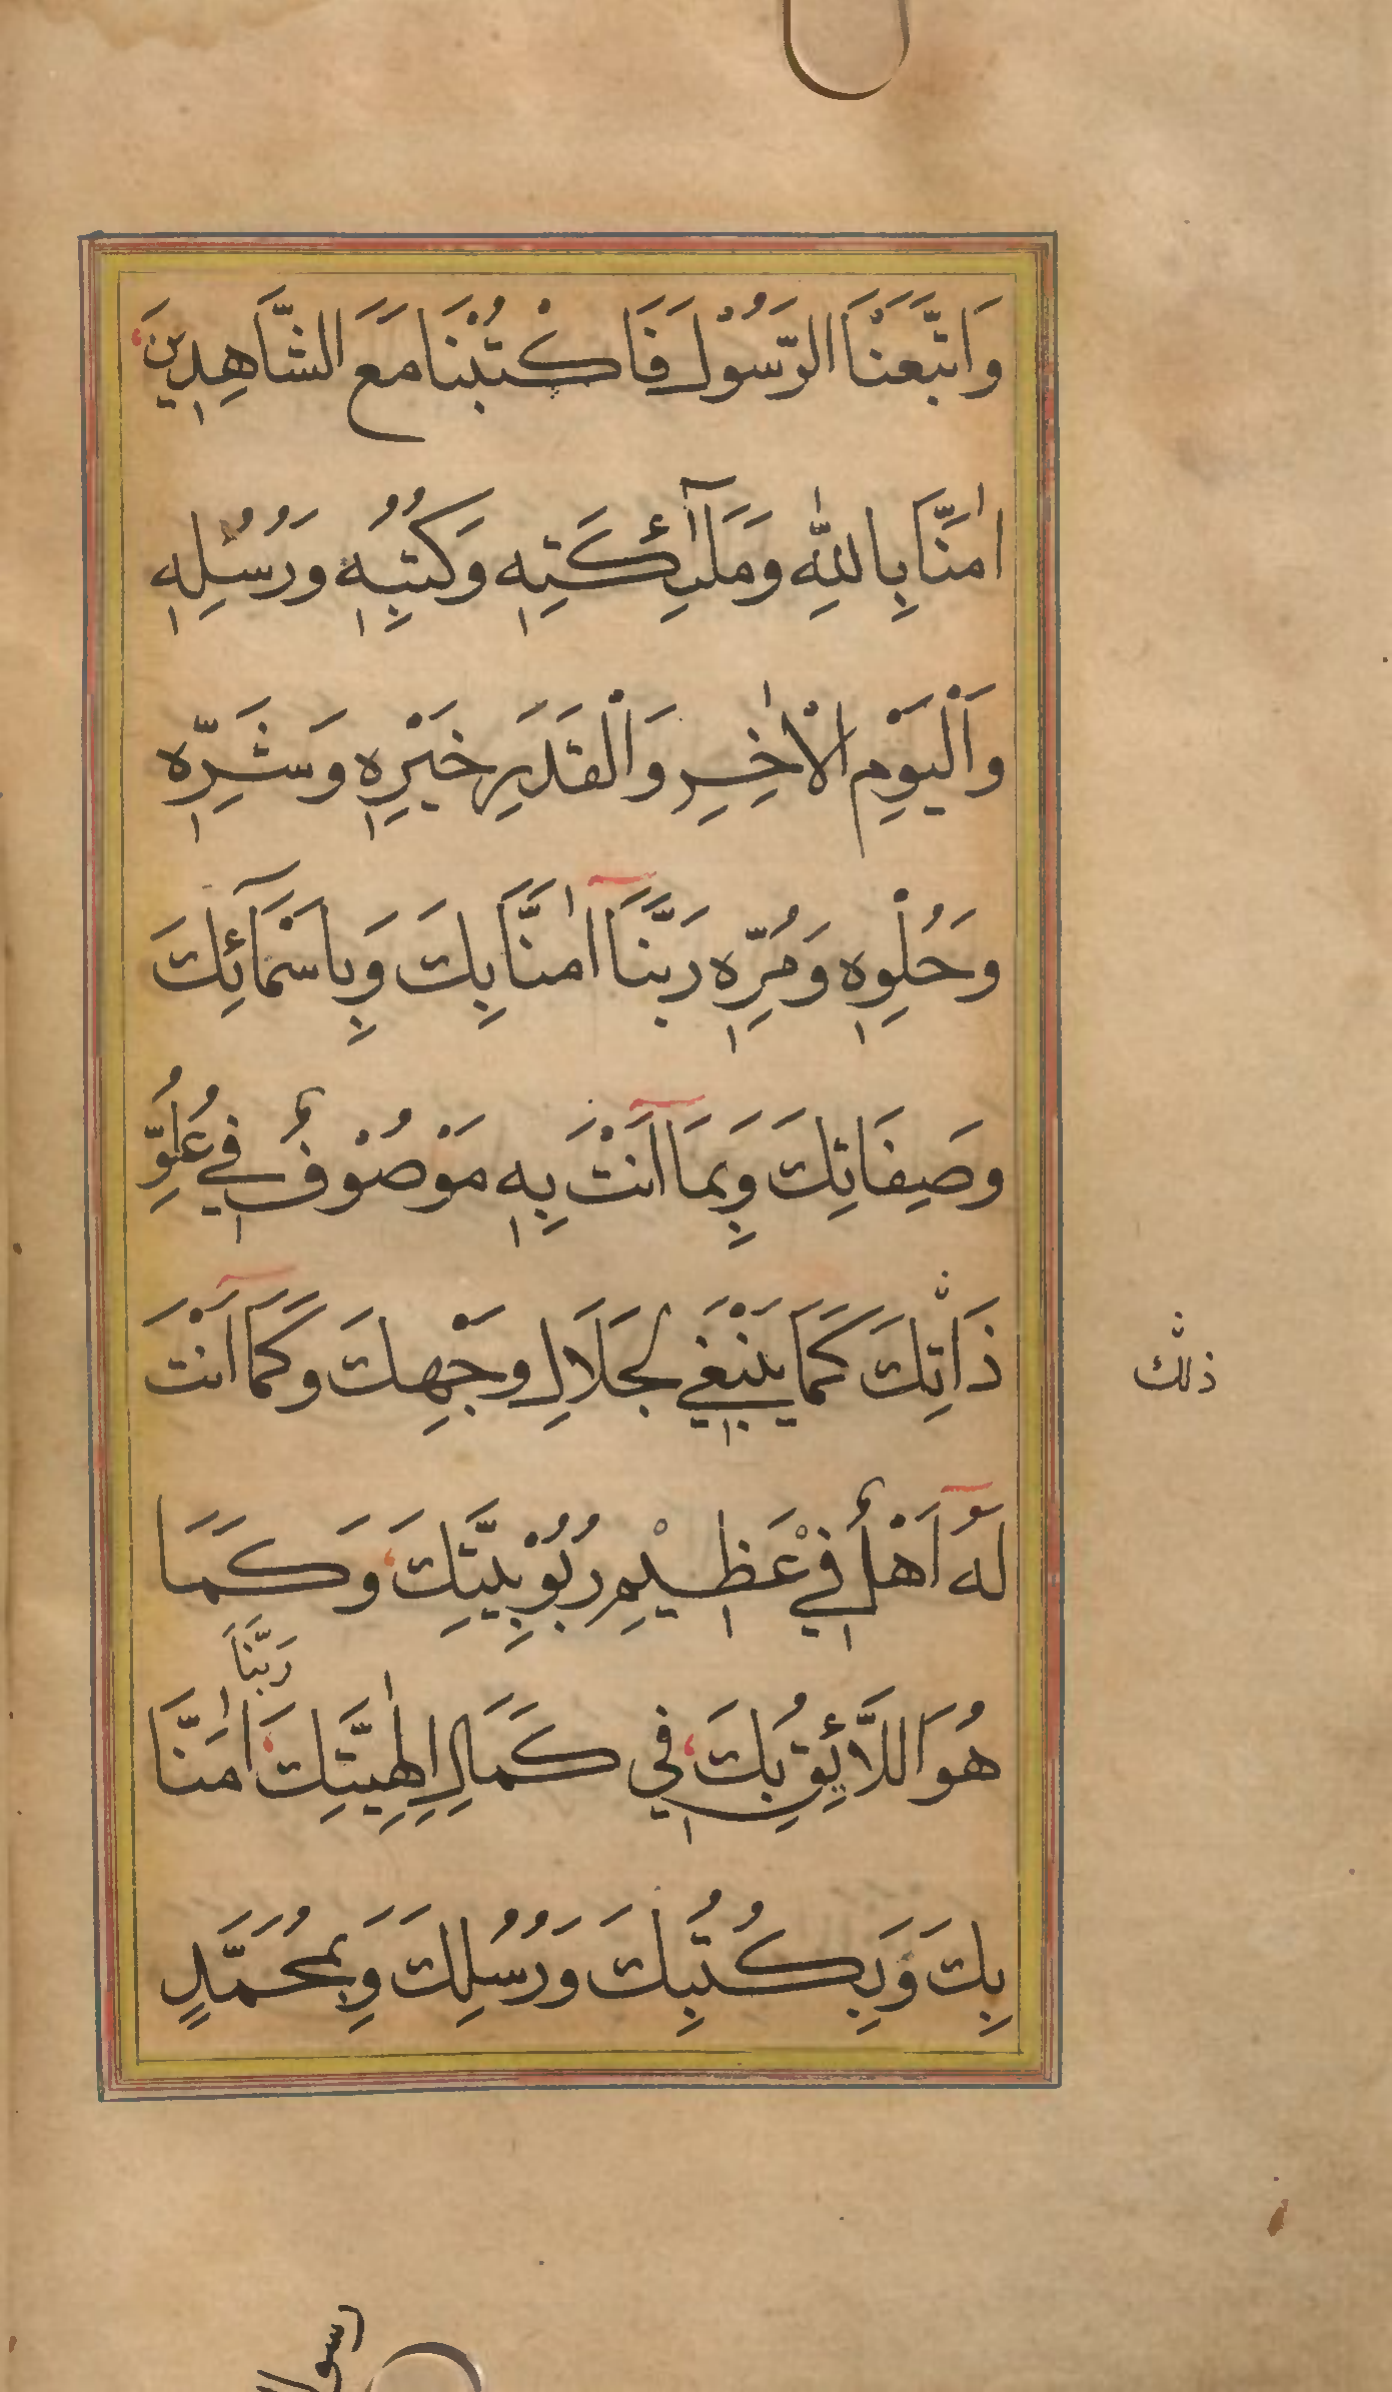 وَاتَّبَعْنَا الرَّسُوْلَ فَاكْتُبْنَا مَعَ الشَّاهِدِينَ
اٰمَنَّا بِاللّٰهِ وَمَلَآئِكَتِهٖ وَكُتُبِهٖ وَرُسُلِهٖ
وَالْيَوْمِ الْاٰخِرِ وَالْقَدَرِ خَيْرِهٖ وَشَرِّهٖ
وَحُلْوِهٖ وَمُرِّهٖ رَبَّنَا اٰمَنَّا بِكَ وَبِاَسْمَآئِكَ
وَصِفَاتِكَ وَبِمَا اَنْتَ بِهٖ مَوْصُوْفٌ فِي عُلُوِّ
ذَاتِكَ كَمَا يَنْبَغِي لِجَلَالِ وَجْهِكَ وَكَمَا اَنْتَ
ذلك
لَهُ اَهْلٌ فِي عَظِيْمِ رُبُوْبِيَّتِكَ وَكَمَا
رَبَّنَا
هُوَ اللَّائِقُ بِكَ فِي كَمَالِ اِلٰهِيَّتِكَ اٰمَنَّا
بِكَ وَبِكُتُبِكَ وَرُسُلِكَ وَبِمُحَمَّدٍ